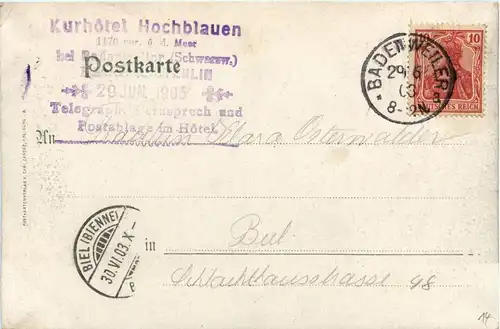 Kurhôtel Hochblauen
1170 m. ü. d. Meer
bei Badenweiler (Schwarzw.)
Postkarte
29 JUN. 1903
Telegraph, Fernsprech und
Postablage im Hôtel.
BADENWEILER
29 6
03
8-9 N
10
DEUTSCHES REICH
An Madame Klara Osterwalder
BIEL (BIENNE)
30.VI.03.X-
in Biel
Schlachthausstrasse 48
14